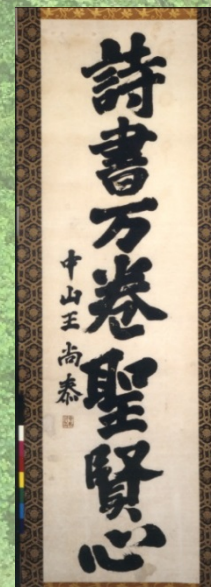 詩書万巻聖賢心
中山王 尚泰